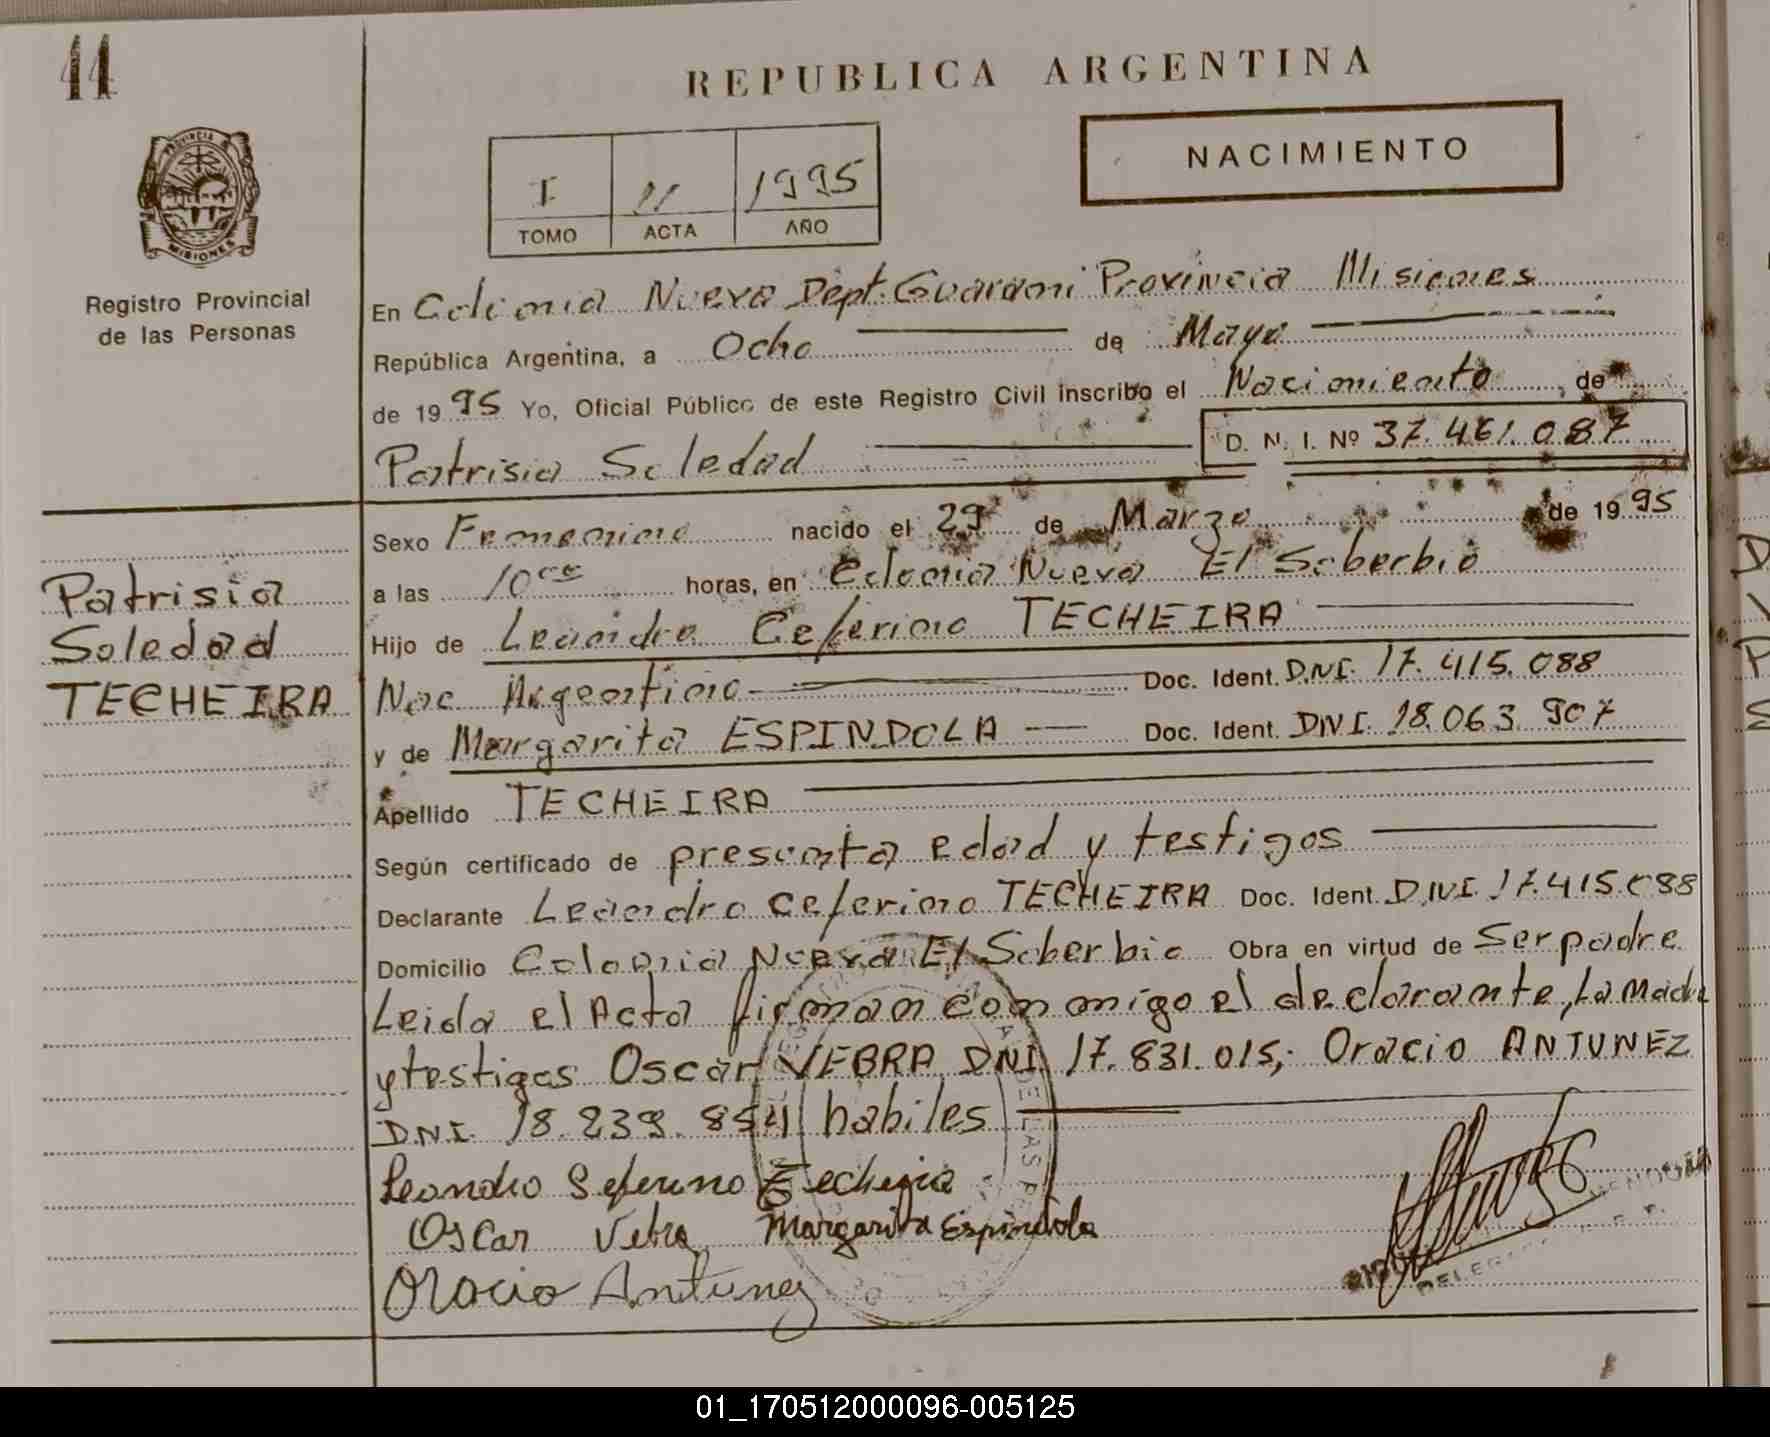 44
REPUBLICA ARGENTINA
NACIMIENTO
I 11 1995
TOMO ACTA AÑO
PROVINCIA
MISIONES
Registro Provincial
de las Personas
En Colonia Nueva Dept. Guarani Provincia Misiones
República Argentina, a Ocho de Mayo
de 1995 Yo, Oficial Público de este Registro Civil inscribo el Nacimiento, de
Patrisia Soledad D. N. I. Nº 37.461.087
Sexo Femenino nacido el 29 de Marzo de 1995
a las 10 horas, en Colonia Nueva El Soberbio
Hijo de Leandro Ceferino TECHEIRA
Nac. Argentino Doc. Ident. DNI. 17.415.088
y de Margarita ESPINDOLA Doc. Ident. DNI. 18.063.907
Apellido TECHEIRA
Según certificado de presunta edad y testigos
Declarante Leandro Ceferino TECHEIRA Doc. Ident. DNI. 17.415.088
Domicilio Colonia Nueva El Soberbio Obra en virtud de Ser padre
Leida el Acta firman conmigo el declarante, La Madre
y testigos Oscar VEBRA DNI 17.831.015; Oracio ANTUNEZ
DNI. 18.239.854 habiles
Leandro Seferino Techeira
Oscar Vebra Margarita Espindola
Oracio Antunez
Patrisia
Soledad
TECHEIRA
01_170512000096-005125